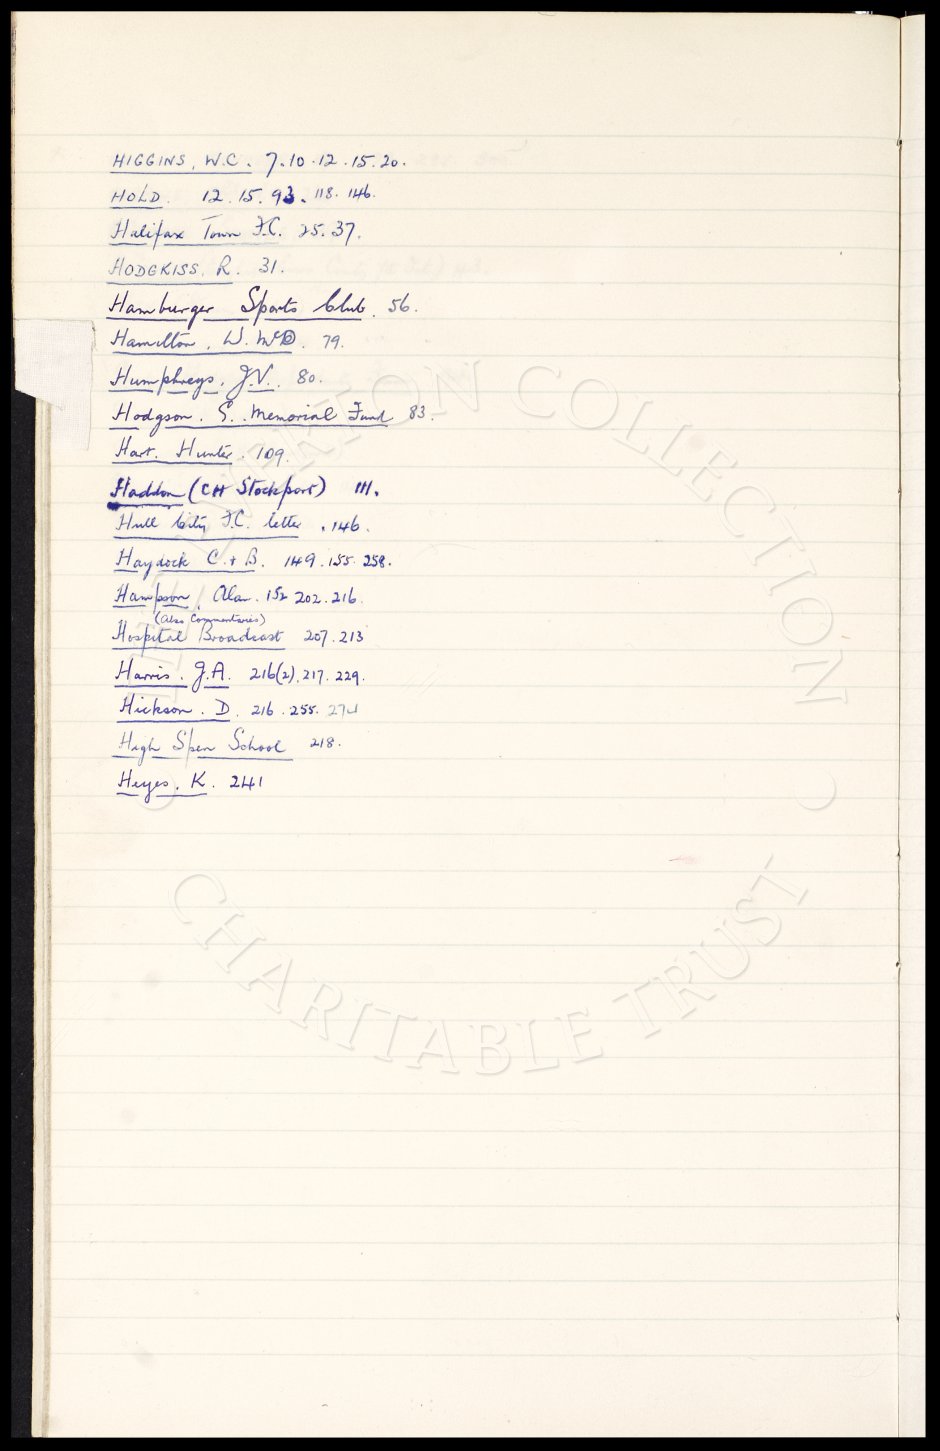 HIGGINS, W.C. 7.10.12.15.20.
HOLD. 12.15.93.118.146.
Halifax Town F.C. 25.37.
HODGKISS, R. 31.
Hamburger Sports Club. 56.
Hamilton, W. McD. 79.
Humphreys, J.V. 80.
Hodgson. S. Memorial Fund 83.
Hart. Hunter. 109.
Haddon (CH Stockport) 111.
Hull City F.C. letter. 146.
Haydock C. + B. 149.155.258.
Hampson, Alan. 152 202.216.
(also Commentaries)
Hospital Broadcast 207.213
Harris. J.A. 216(2).217.229.
Hickson. D. 216.255. 274
High Spen School 218.
Heyes, K. 241
EVERTON COLLECTION
CHARITABLE TRUST